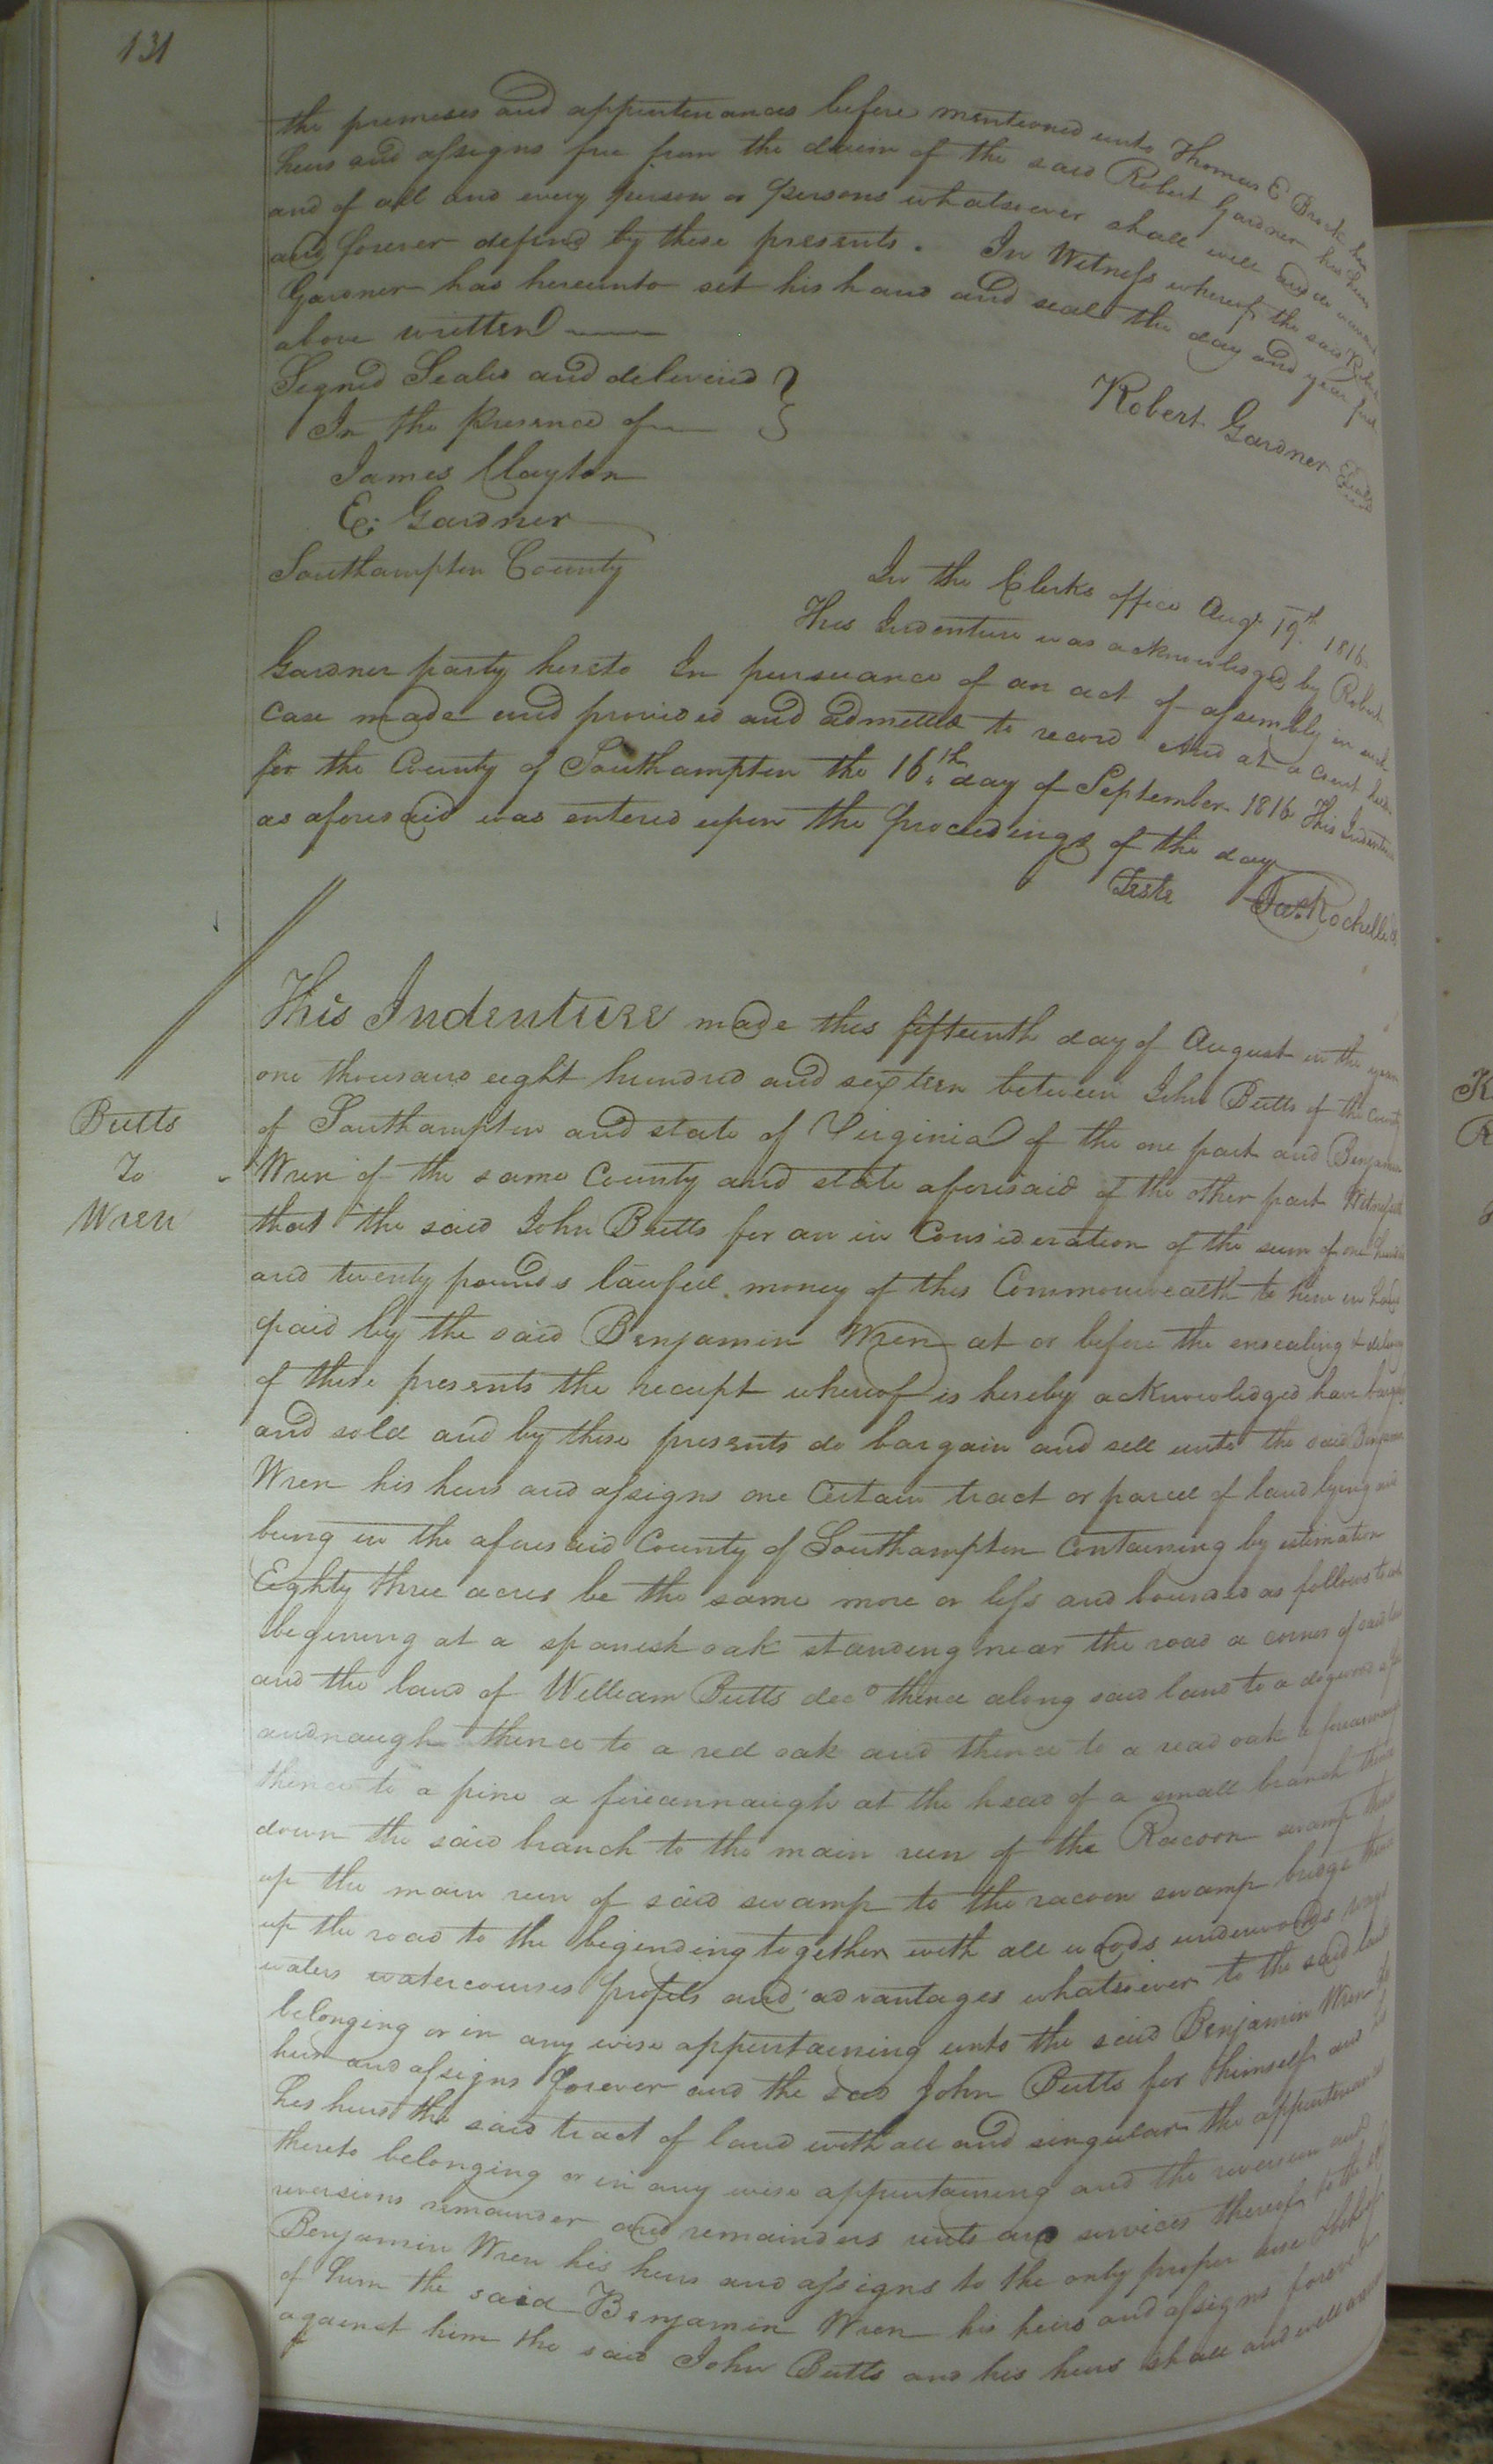 131
the premises and appurtenances before mentioned unto Thomas E Brock his
heirs and assigns free from the claim of the said Robert Gardner his heirs
and of all and every person or persons whatsoever shall will and do warrant
and forever defend by these presents. In Witness whereof the said Robert
Gardner has hereunto set his hand and seal the day and year first
above written
Signed Sealed and delivered
In the Presence of
Robert Gardner Seal
James Clayton
E. Gardner
Southampton County
In the Clerks office Augt 19th 1816
This Indenture was acknowledged by Robert
Gardner party hereto In pursuance of an act of assembly in such
case made and provided and admitted to record And at a Court held
for the County of Southampton the 16th day of September 1816 This Indenture
as aforesaid was entered upon the proceedings of the day
Teste Jas. Rochelle
This Indenture made this fifteenth day of August in the year
one thousand eight hundred and sixteen between John Butts of the County
Butts
To
Wren
of Southampton and state of Virginia of the one part and Benjamin
Wren of the same County and state aforesaid of the other part Witnesseth
that the said John Butts for an in Consideration of the sum of one hundred
and twenty pounds lawfull money of this Commonwealth to him in hand
paid by the said Benjamin Wren at or before the ensealing & delivery
of these presents the receipt whereof is hereby acknowledged have bargand
and sold and by these presents do bargain and sell unto the said Benjamin
Wren his heirs and assigns one Certain tract or parcel of land lying and
being in the aforesaid County of Southampton Containing by estimation
Eighty three acres be the same more or less and bounded as follows to wit
begining at a spanish oak standing near the road a corner of said land
and the land of William Butts decd thence along said land to a dogwood a
andnaugh thence to a red oak and thence to a read oak a
thence to a pine a fireannaugh at the head of a small branch thence
down the said branch to the main run of the Racoon swamp thence
up the main run of said swamp to the racoon swamp bridge thence
up the road to the begending together with all woods underwoods ways
waters watercourses profets and advantages whatsoever to the said land
belonging or in any wise appurtaining unto the said Benjamin Wren his
heirs and assigns forever and the said John Butts for himself and
his heirs the said tract of land with all and singular the appurtenances
thereto belonging or in any wise appurtaining and the reversion and
reversions remainder and remainders rents and services thereof to the sd
Benjamin Wren his heirs and assigns to the only proper use & behoof
of him the said Benjamin Wren his heirs and assigns forever
against him the said John Butts and his heirs shall and will warrant